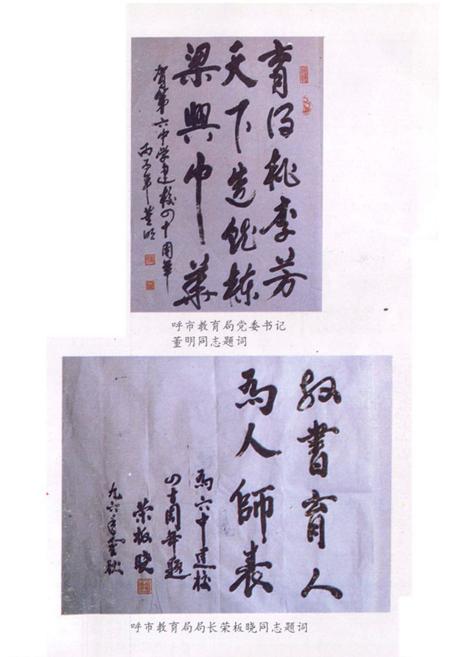 育得桃李芳
天下造就栋
梁兴中华
贺第六中学建校四十周年
丙子年 董明
呼市教育局党委书记
董明同志题词
教书育人
為人師表
為六中建校
四十周年题
荣板晓
九六年金秋
呼市教育局局长荣板晓同志题词